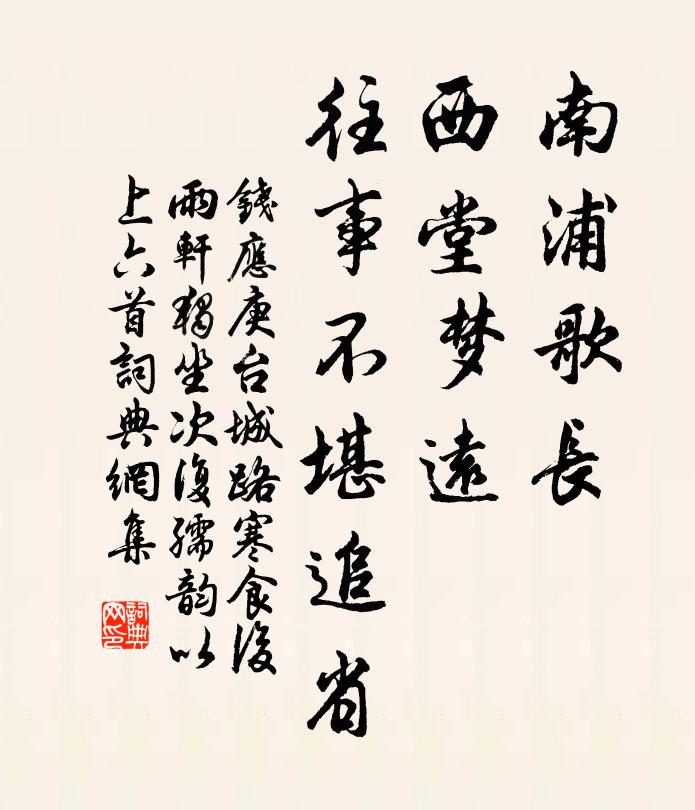 南浦歌長
西堂梦遠
往事不堪追省
錢應庚台城路寒食後
雨軒獨坐次復孺韵以
上六首詞典網集
詞典
网印